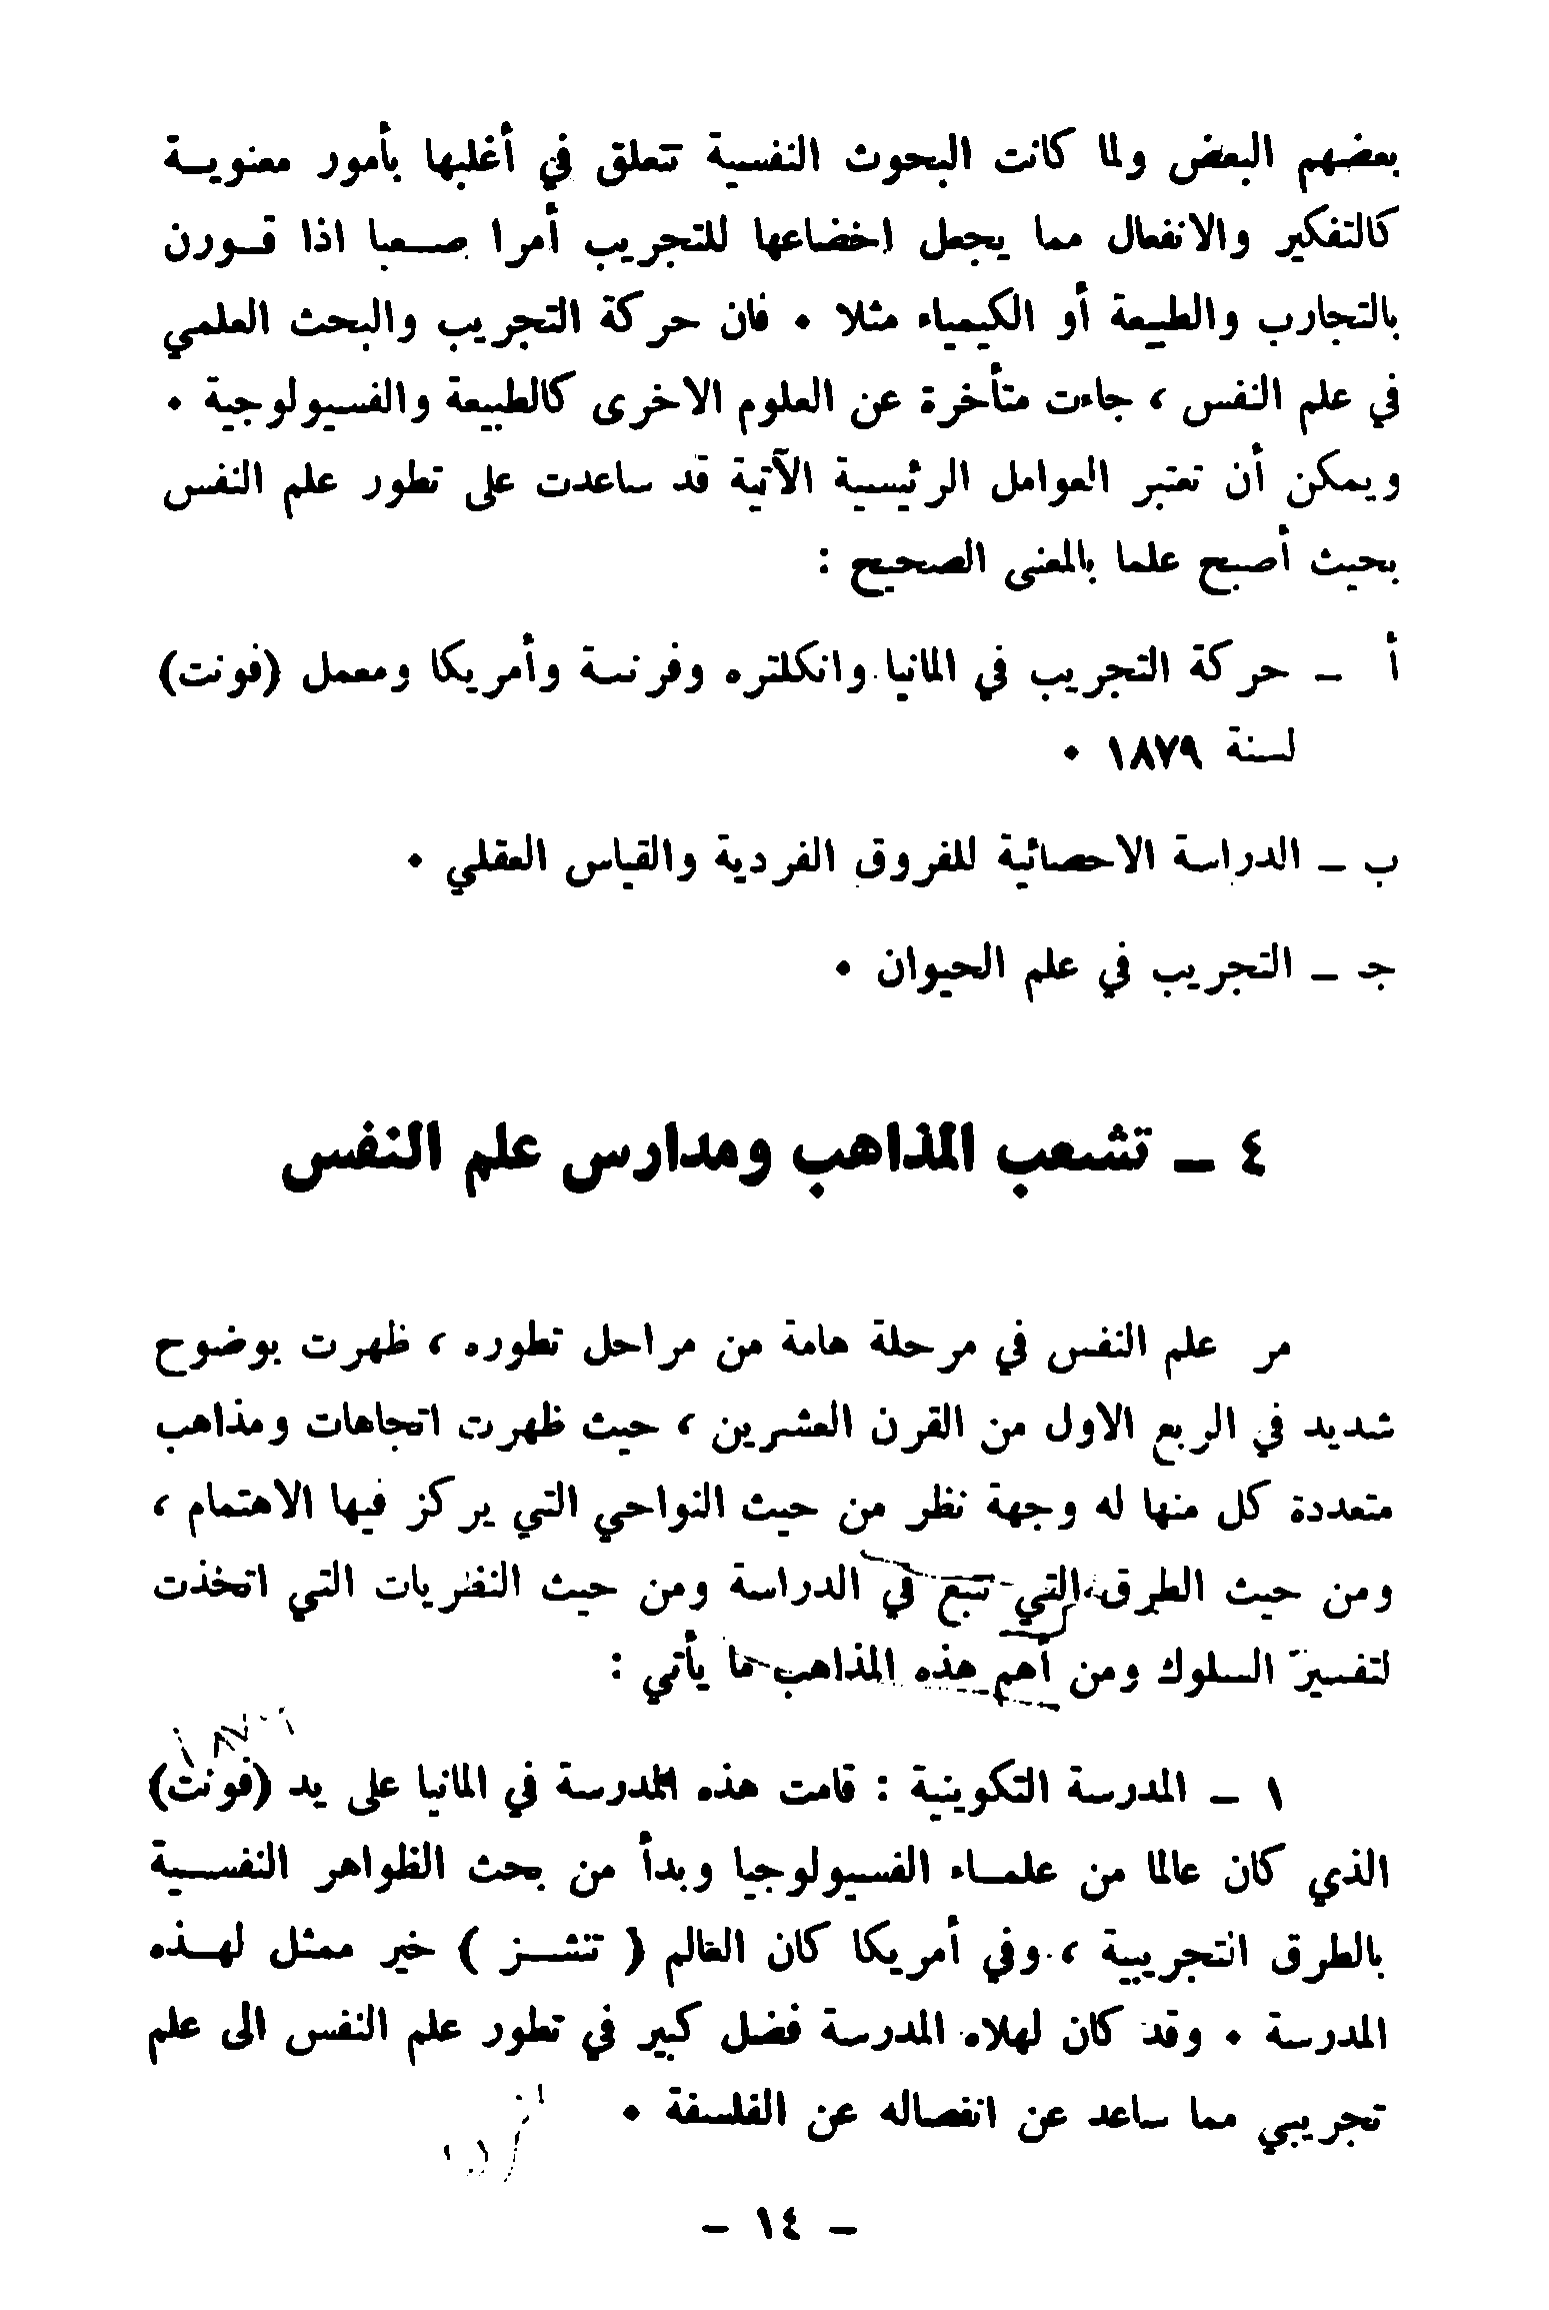 بعضهم البعض ولما كانت البحوث النفسية تتعلق في أغلبها بأمور معنويــة
كالتفكير والانفعال مما يجعل اخضاعها للتجريب أمرا صــعبا اذا قــورن
بالتجارب والطبيعة أو الكيمياء مثلا ٠ فان حركة التجريب والبحث العلمي
في علم النفس ، جاءت متأخرة عن العلوم الاخرى كالطبيعة والفسيولوجية ٠
ويمكن أن تعتبر العوامل الرئيسية الآتية قد ساعدت على تطور علم النفس
بحيث أصبح علما بالمعنى الصحيح :
أ ـ حركة التجريب في المانيا وانكلتره وفرنسة وأمريكا ومعمل (فونت)
لسنة ١٨٧٩ ٠
ب ـ الدراسة الاحصائية للفروق الفردية والقياس العقلي ٠
جـ ـ التجريب في علم الحيوان ٠
٤ ـ تشعب المذاهب ومدارس علم النفس
مر علم النفس في مرحلة هامة من مراحل تطوره ، ظهرت بوضوح
شديد في الربع الاول من القرن العشرين ، حيث ظهرت اتجاهات ومذاهب
متعددة كل منها له وجهة نظر من حيث النواحي التي يركز فيها الاهتمام ،
ومن حيث الطرق التي تتبع في الدراسة ومن حيث النظريات التي اتخذت
لتفسير السلوك ومن أهم هذه المذاهب ما يأتي :
١ ـ المدرسة التكوينية : قامت هذه المدرسة في المانيا على يد (فونت)
الذي كان عالما من علمــاء الفسيولوجيا وبدأ من بحث الظواهر النفســية
بالطرق التجريبية ، وفي أمريكا كان العالم ( تتشــز ) خير ممثل لهــذه
المدرسة ٠ وقد كان لهلاه المدرسة فضل كبير في تطور علم النفس الى علم
تجريبي مما ساعد عن انفصاله عن الفلسفة ٠
ـ ١٤ ـ